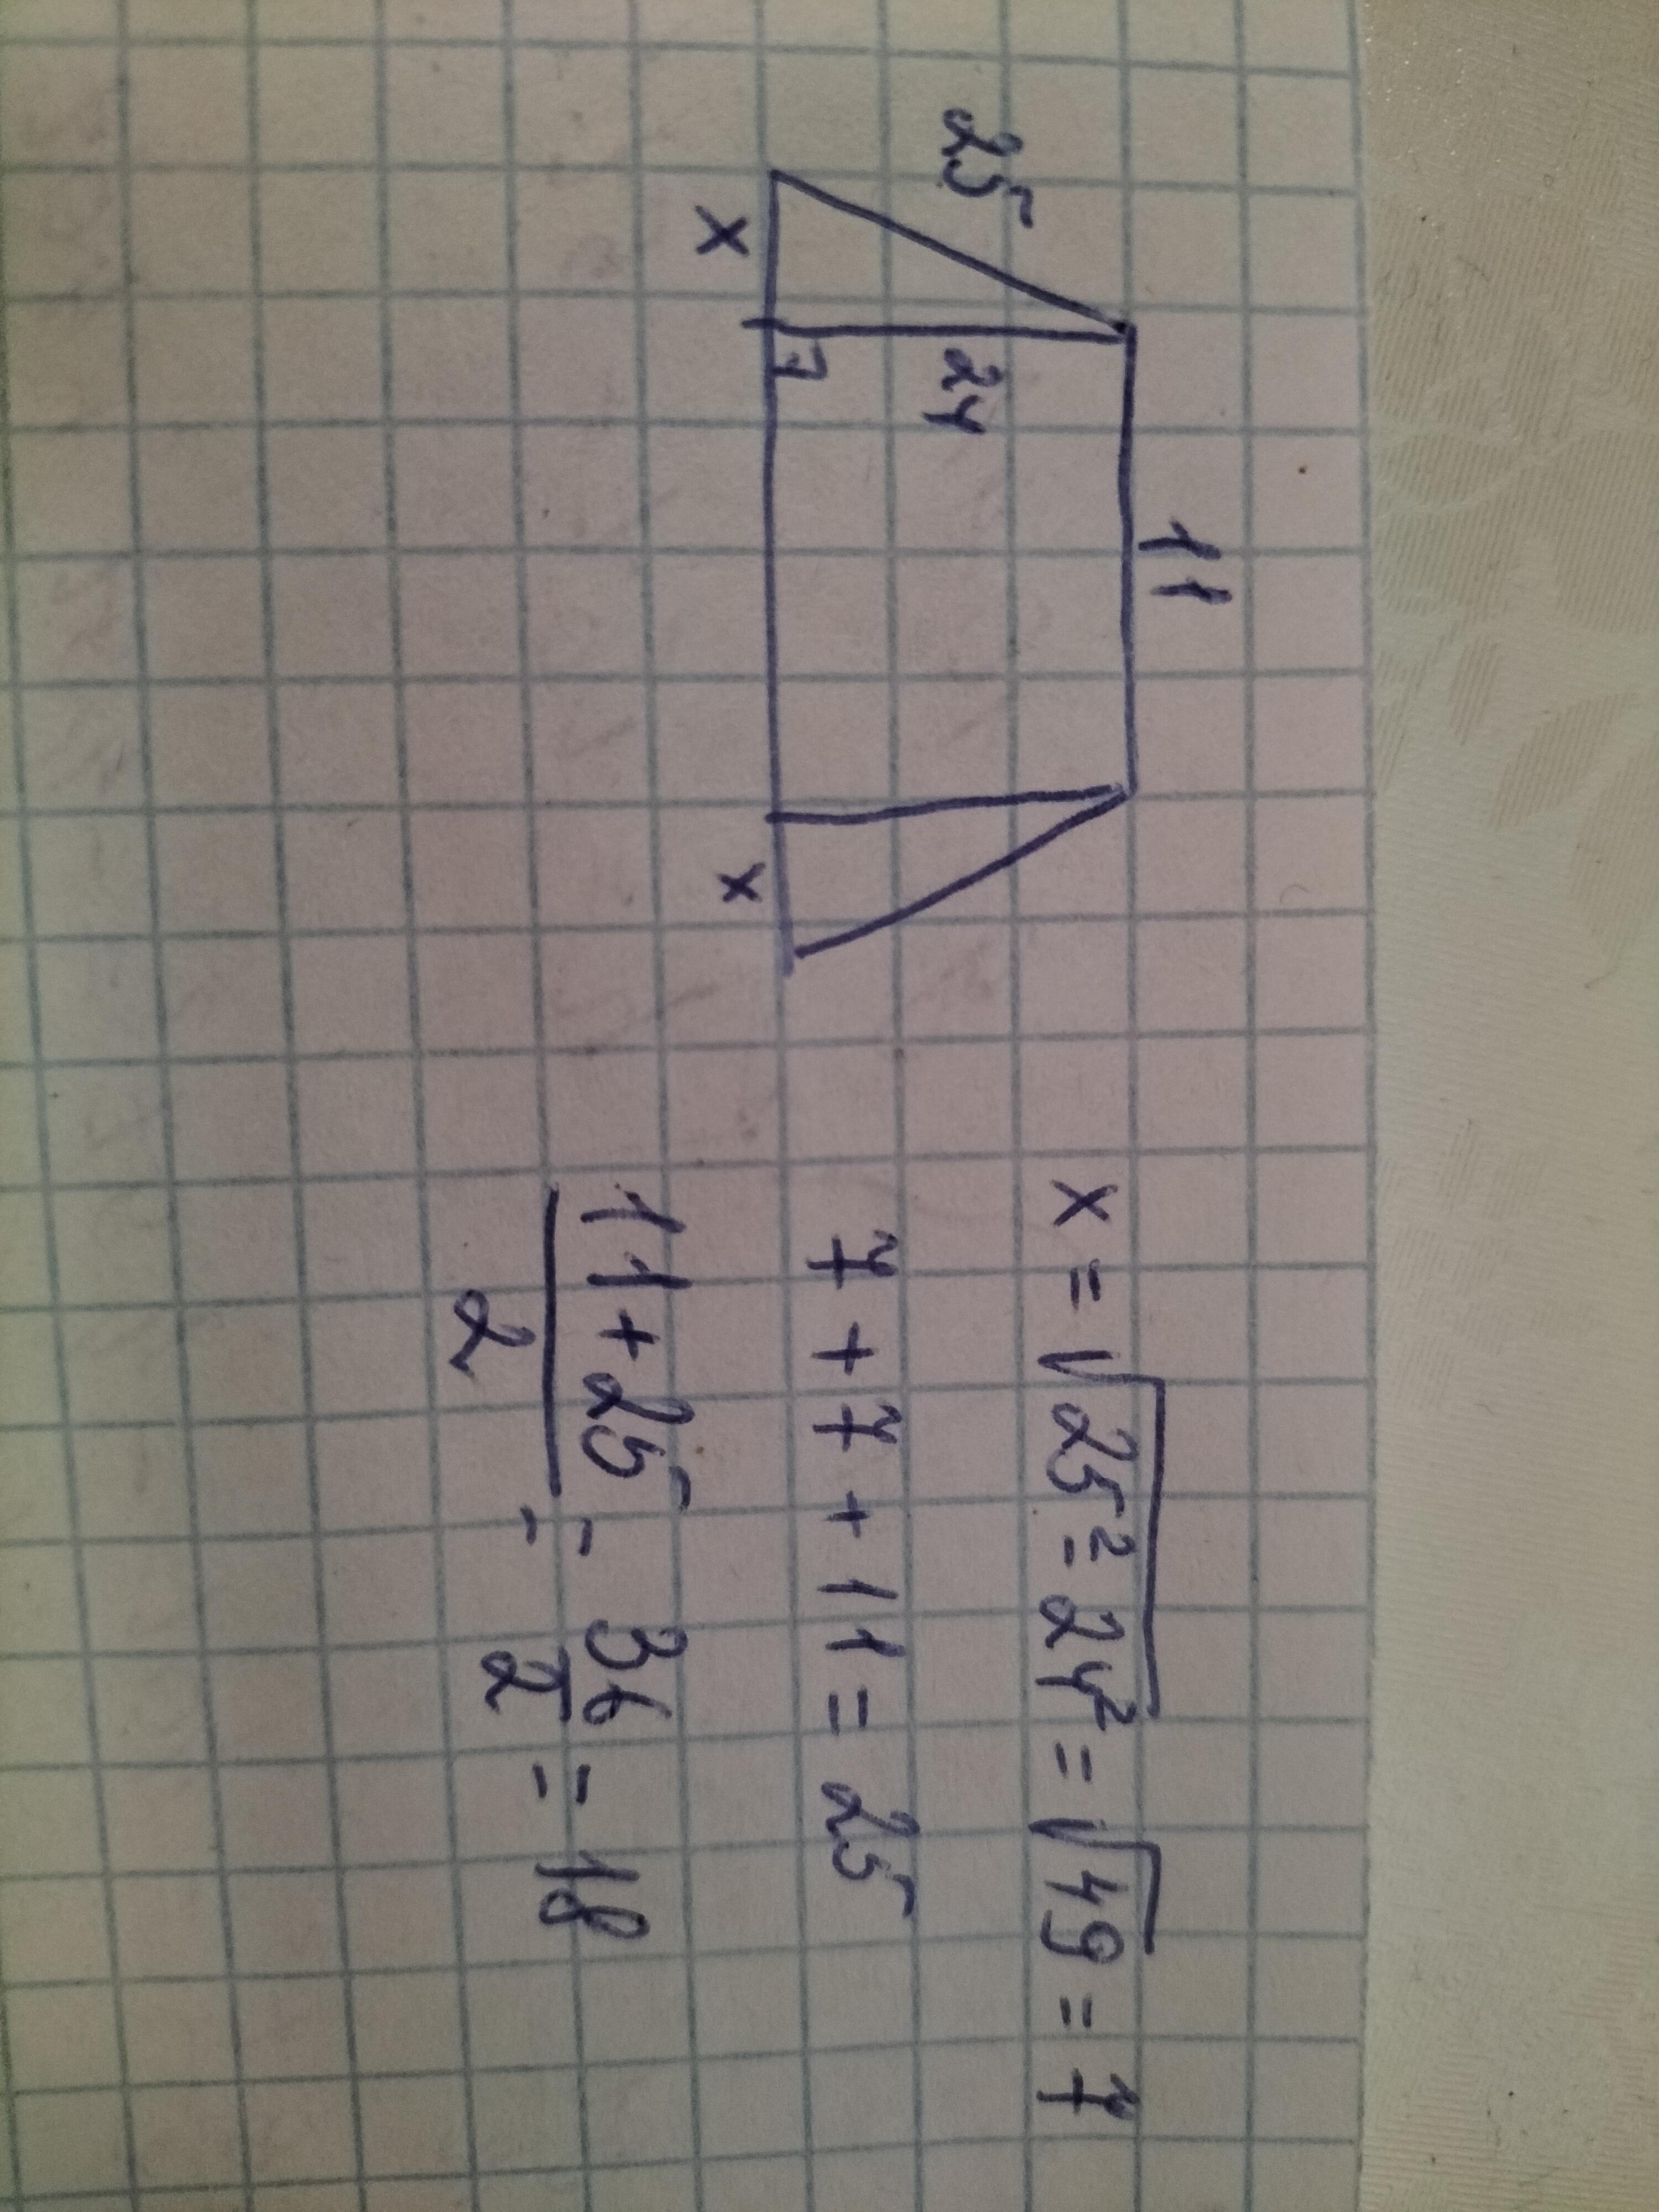 11
25
24
x
x
x = √25² - 24² = √49 = 7
7 + 7 + 11 = 25
11 + 25 / 2 = 36 / 2 = 18